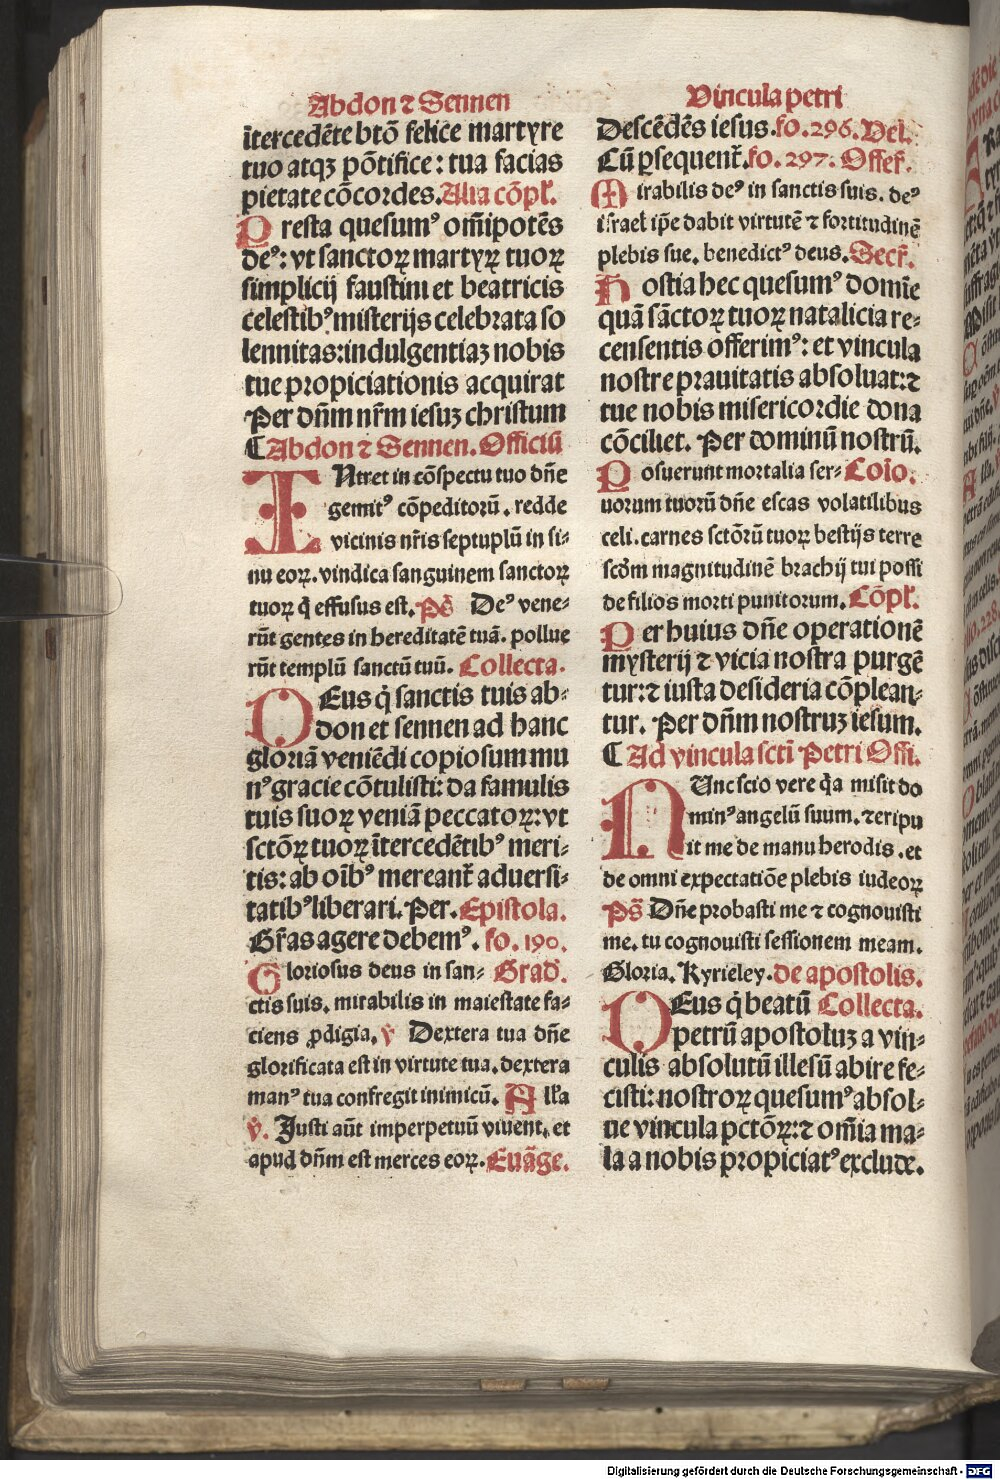 Abdon ⁊ Sennen
ītercedēte btō felice martyre
tuo atqꝫ pōtifice: tua facias
pietate cōcordes. Alia cōpl̄.
Presta quesumꝰ om̄ipotēs
deꝰ: vt sanctoꝝ martyꝝ tuoꝝ
simplicij faustini et beatricis
celestibꝰ misterijs celebrata so
lennitas: indulgentiaꝫ nobis
tue propiciationis acquirat
Per dn̄m nr̄m iesuꝫ christum
¶ Abdon ⁊ Sennen. Officiū
INtret in cōspectu tuo dn̄e
gemitꝰ cōpeditorū. redde
vicinis nr̄is septuplū in si-
nu eoꝝ. vindica sanguinem sanctoꝝ
tuoꝝ q̇ effusus est. Ps̄ Deꝰ vene-
rūt gentes in hereditatē tuā. pollue
rūt templū sanctū tuū. Collecta.
DEus q̇ sanctis tuis ab-
don et sennen ad hanc
gloriā veniēdi copiosum mu
nꝰ gracie cōtulisti: da famulis
tuis suoꝝ veniā peccatoꝝ: vt
sctōꝝ tuoꝝ ītercedētibꝰ meri-
tis: ab oībꝰ mereant̄ aduersi-
tatibꝰ liberari. Per. Epistola.
Gr̄as agere debemꝰ. fo. 190.
Gloriosus deus in san- Grad̄.
ctis suis. mirabilis in maiestate fa-
ciens ꝓdigia. v̄ Dextera tua dn̄e
glorificata est in virtute tua. dextera
manꝰ tua confregit inimicū. All̄a
v̄. Justi aūt imperpetuū viuent. et
apud dn̄m est merces eoꝝ. Euāge.
Vincula petri
Descēdēs iesus. fo. 296. Vel.
Cū ꝑsequent̄. fo. 297. Offer̄.
Mirabilis deꝰ in sanctis suis. deꝰ
israel ip̄e dabit virtutē ⁊ fortitudinē
plebis sue. benedictꝰ deus. Secr̄.
Hostia hec quesumꝰ domīe
quā sāctoꝝ tuoꝝ natalicia re-
censentis offerimꝰ: et vincula
nostre prauitatis absoluat: ⁊
tue nobis misericordie dona
cōciliet. Per dominū nostrū.
Posuerunt mortalia ser- Coīo.
uorum tuorū dn̄e escas volatilibus
celi. carnes sctōrū tuoꝝ bestijs terre
scd̄m magnitudinē brachij tui possi
de filios morti punitorum. Cōpl̄.
Per huius dn̄e operationē
mysterij ⁊ vicia nostra purgē
tur: ⁊ iusta desideria cōplean-
tur. Per dn̄m nostruꝫ iesum.
¶ Ad vincula scti Petri Offi.
NUnc scio vere q̇a misit do
minꝰ angelū suum. ⁊ eripu
it me de manu herodis. et
de omni expectatiōe plebis iudeoꝝ
Ps̄ Dn̄e probasti me ⁊ cognouisti
me. tu cognouisti sessionem meam.
Gloria. Kyrieley. de apostolis.
DEus q̇ beatū Collecta.
petrū apostoluꝫ a vin-
culis absolutū illesū abire fe-
cisti: nostroꝝ quesumꝰ absol-
ue vincula pctōꝝ: ⁊ om̄ia ma-
la a nobis propiciatꝰ exclude.
Digitalisierung gefördert durch die Deutsche Forschungsgemeinschaft - DFG